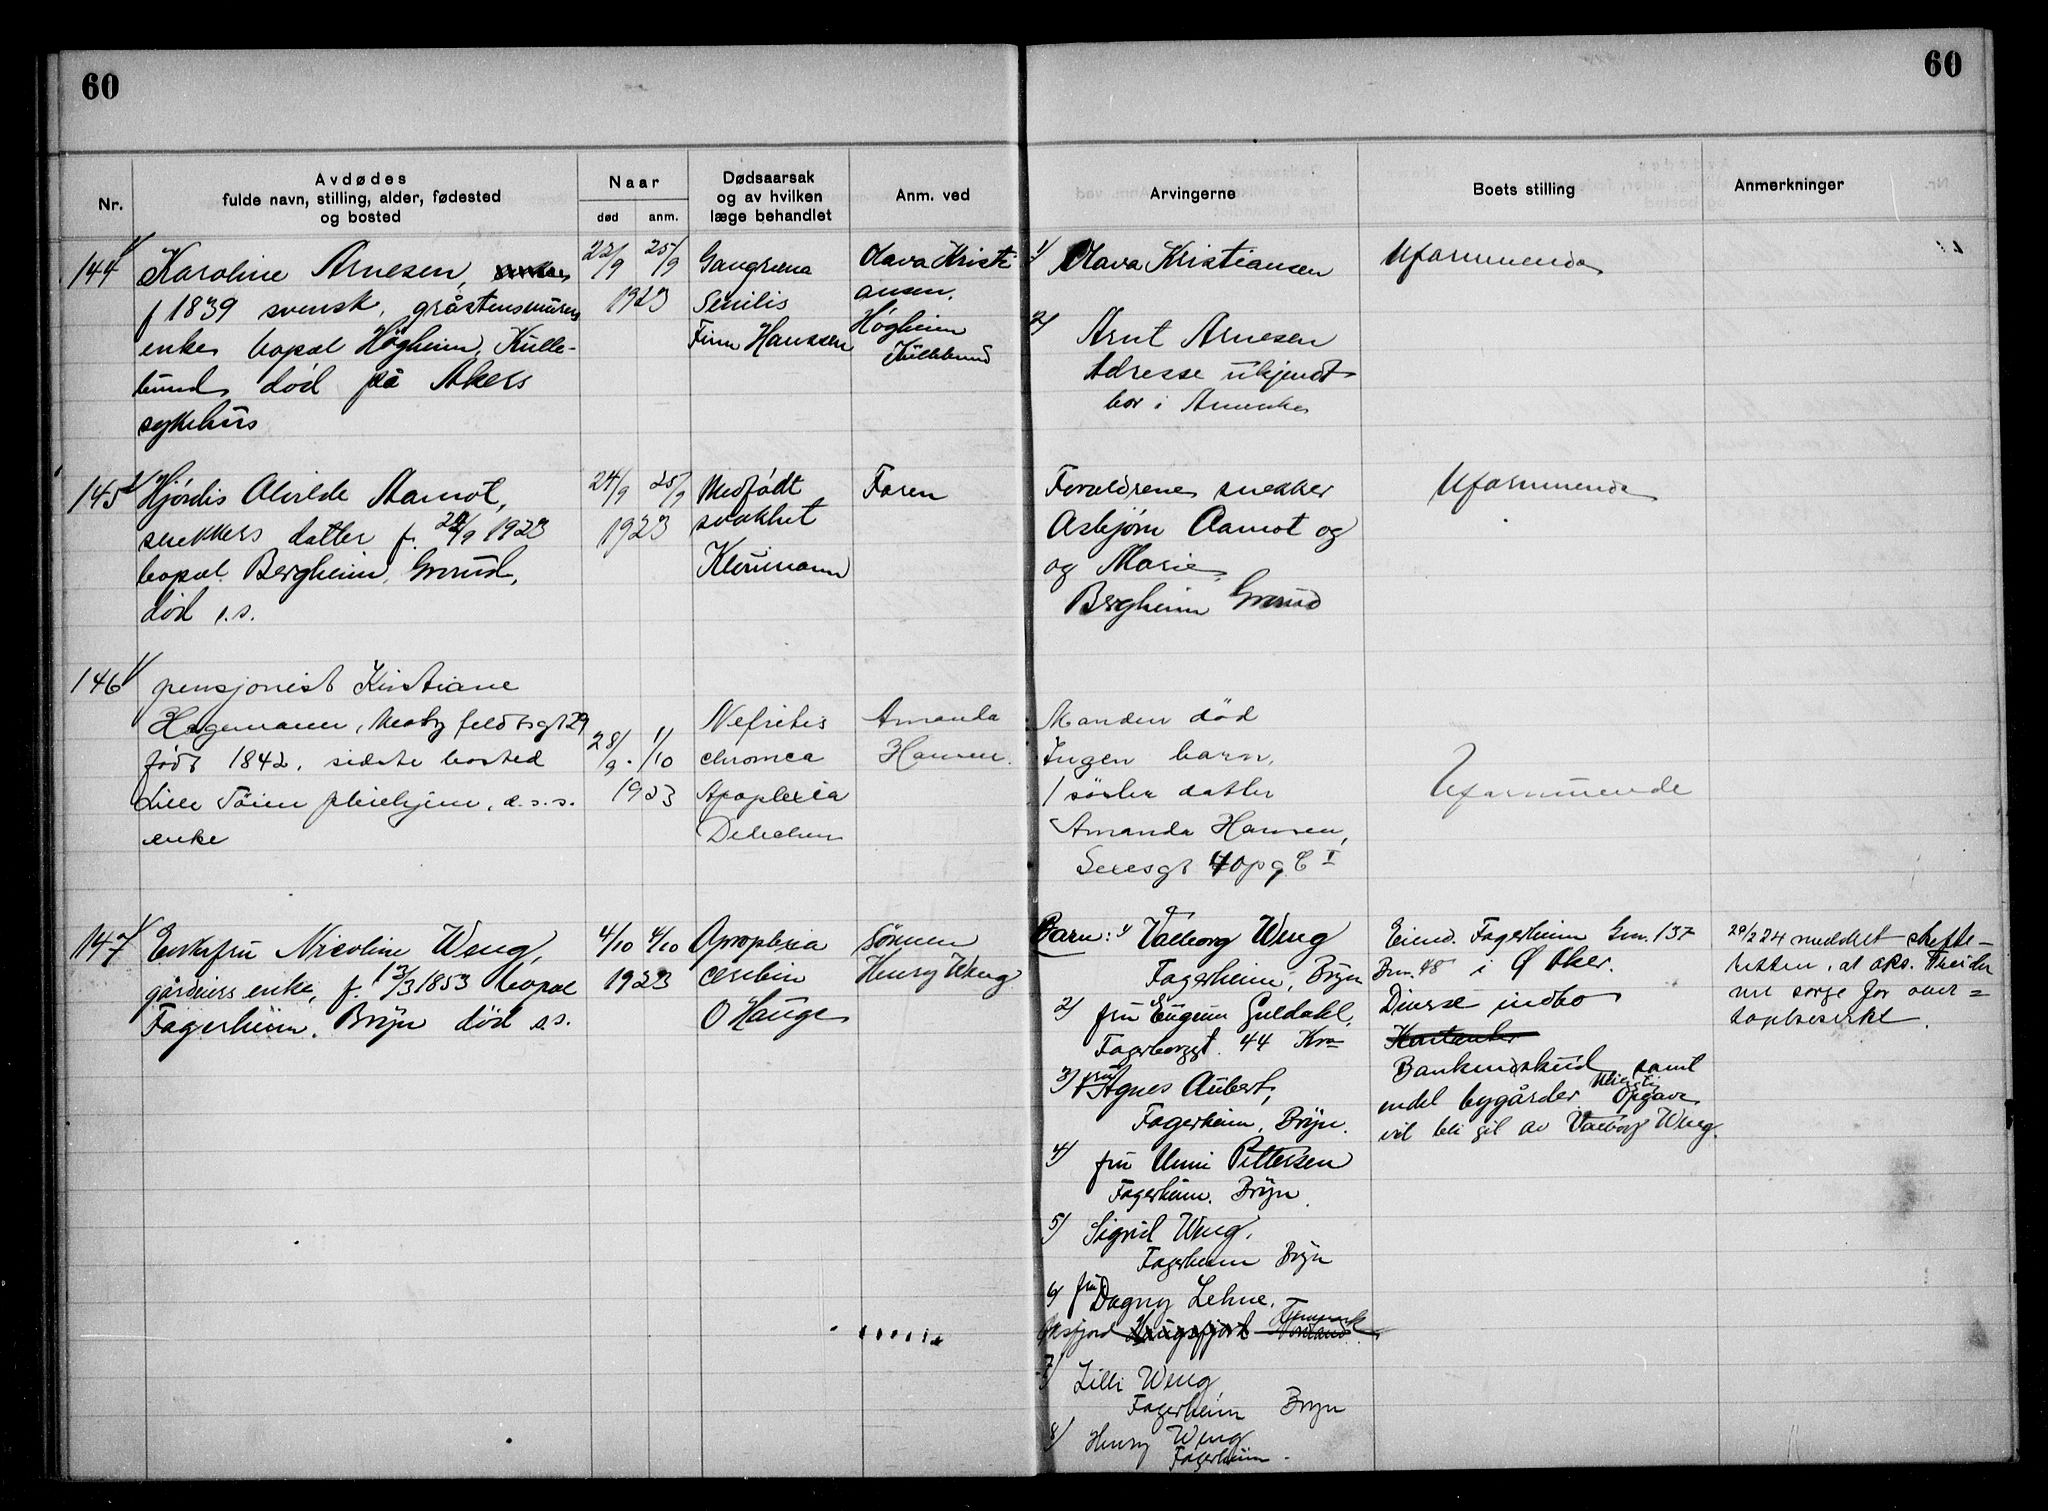 60
60
Nr.
Avdødes
fulde navn, stilling, alder, fødested
og bosted
Naar
død
anm.
Dødsaarsak
og av hvilken
læge behandlet
Anm. ved
Arvingerne
Boets stilling
Anmerkninger
144
Karoline Arnesen,
f 1839 svensk, gråstensmurers
enke bopæl Høgheim, Kulle-
bund død på Akers
sykehus
22/9 25/9
1923
Gangræna
Senilis
Finn Hanssen
Olava Kristi
ansen.
Høgheim
Kullebund
1) Olava Kristiansen
2) Arnt Arnesen
Adresse ukjendt
bor i Amerika
Uformuende
145
Hjørdis Alvilde Aamot,
snekkers datter f. 24/9 1923
bopæl Bergheim, Grorud,
død s.s.
24/9 25/9
1923
Medfødt
svakhet
Faren
Forældrene snekker
Asbjørn Aamot og
og Marie
Bergheim Grorud
Uformuende
146
pensjonist Kristiane
Hagemann, feldtsgt 29
født 1842, sidste bosted
Lille Tøien pleiehjem, d.s.s.
enke
28/9 1/10
1923
Nefritis
chronica
Apoplexia
Amanda
Hansen.
Manden død
Ingen barn,
1 søster datter
Amanda Hansen,
opg C I
Uformuende
147
Enkefru Nicoline Weng,
gårdeiers enke, f. 13/3 1853 bopæl
Fagerheim, Bryn død s.s.
4/10 4/10
1923
Apoplexia
cerebri
O Hauge
Sønnen
Henry Weng
Barn: 1) Valborg Weng
Fagerheim, Bryn
2) fru Eugenie Guldahl,
Fagerborggt. 44 Kra
3) fru Agnes Aubert,
Fagerheim, Bryn.
4) fru Unni Pettersen
Fagerheim. Bryn.
5) Sigrid Weng,
Fagerheim Bryn
6) fru Dagny Lehne,
Øksfjord Finmark
7) Lilli Weng
Fagerheim Bryn
8) Henry Weng
Fagerheim.
Eiend. Fagerheim Gnr. 137
Bnr. 48 i Ø Aker.
Diverse indbo
Bankindskud samt
endel bygårder Opgave
vil bli git av Valborg Weng.
29/2 24 meddelt skifte-
retten, at oks.
vil sørge for over=